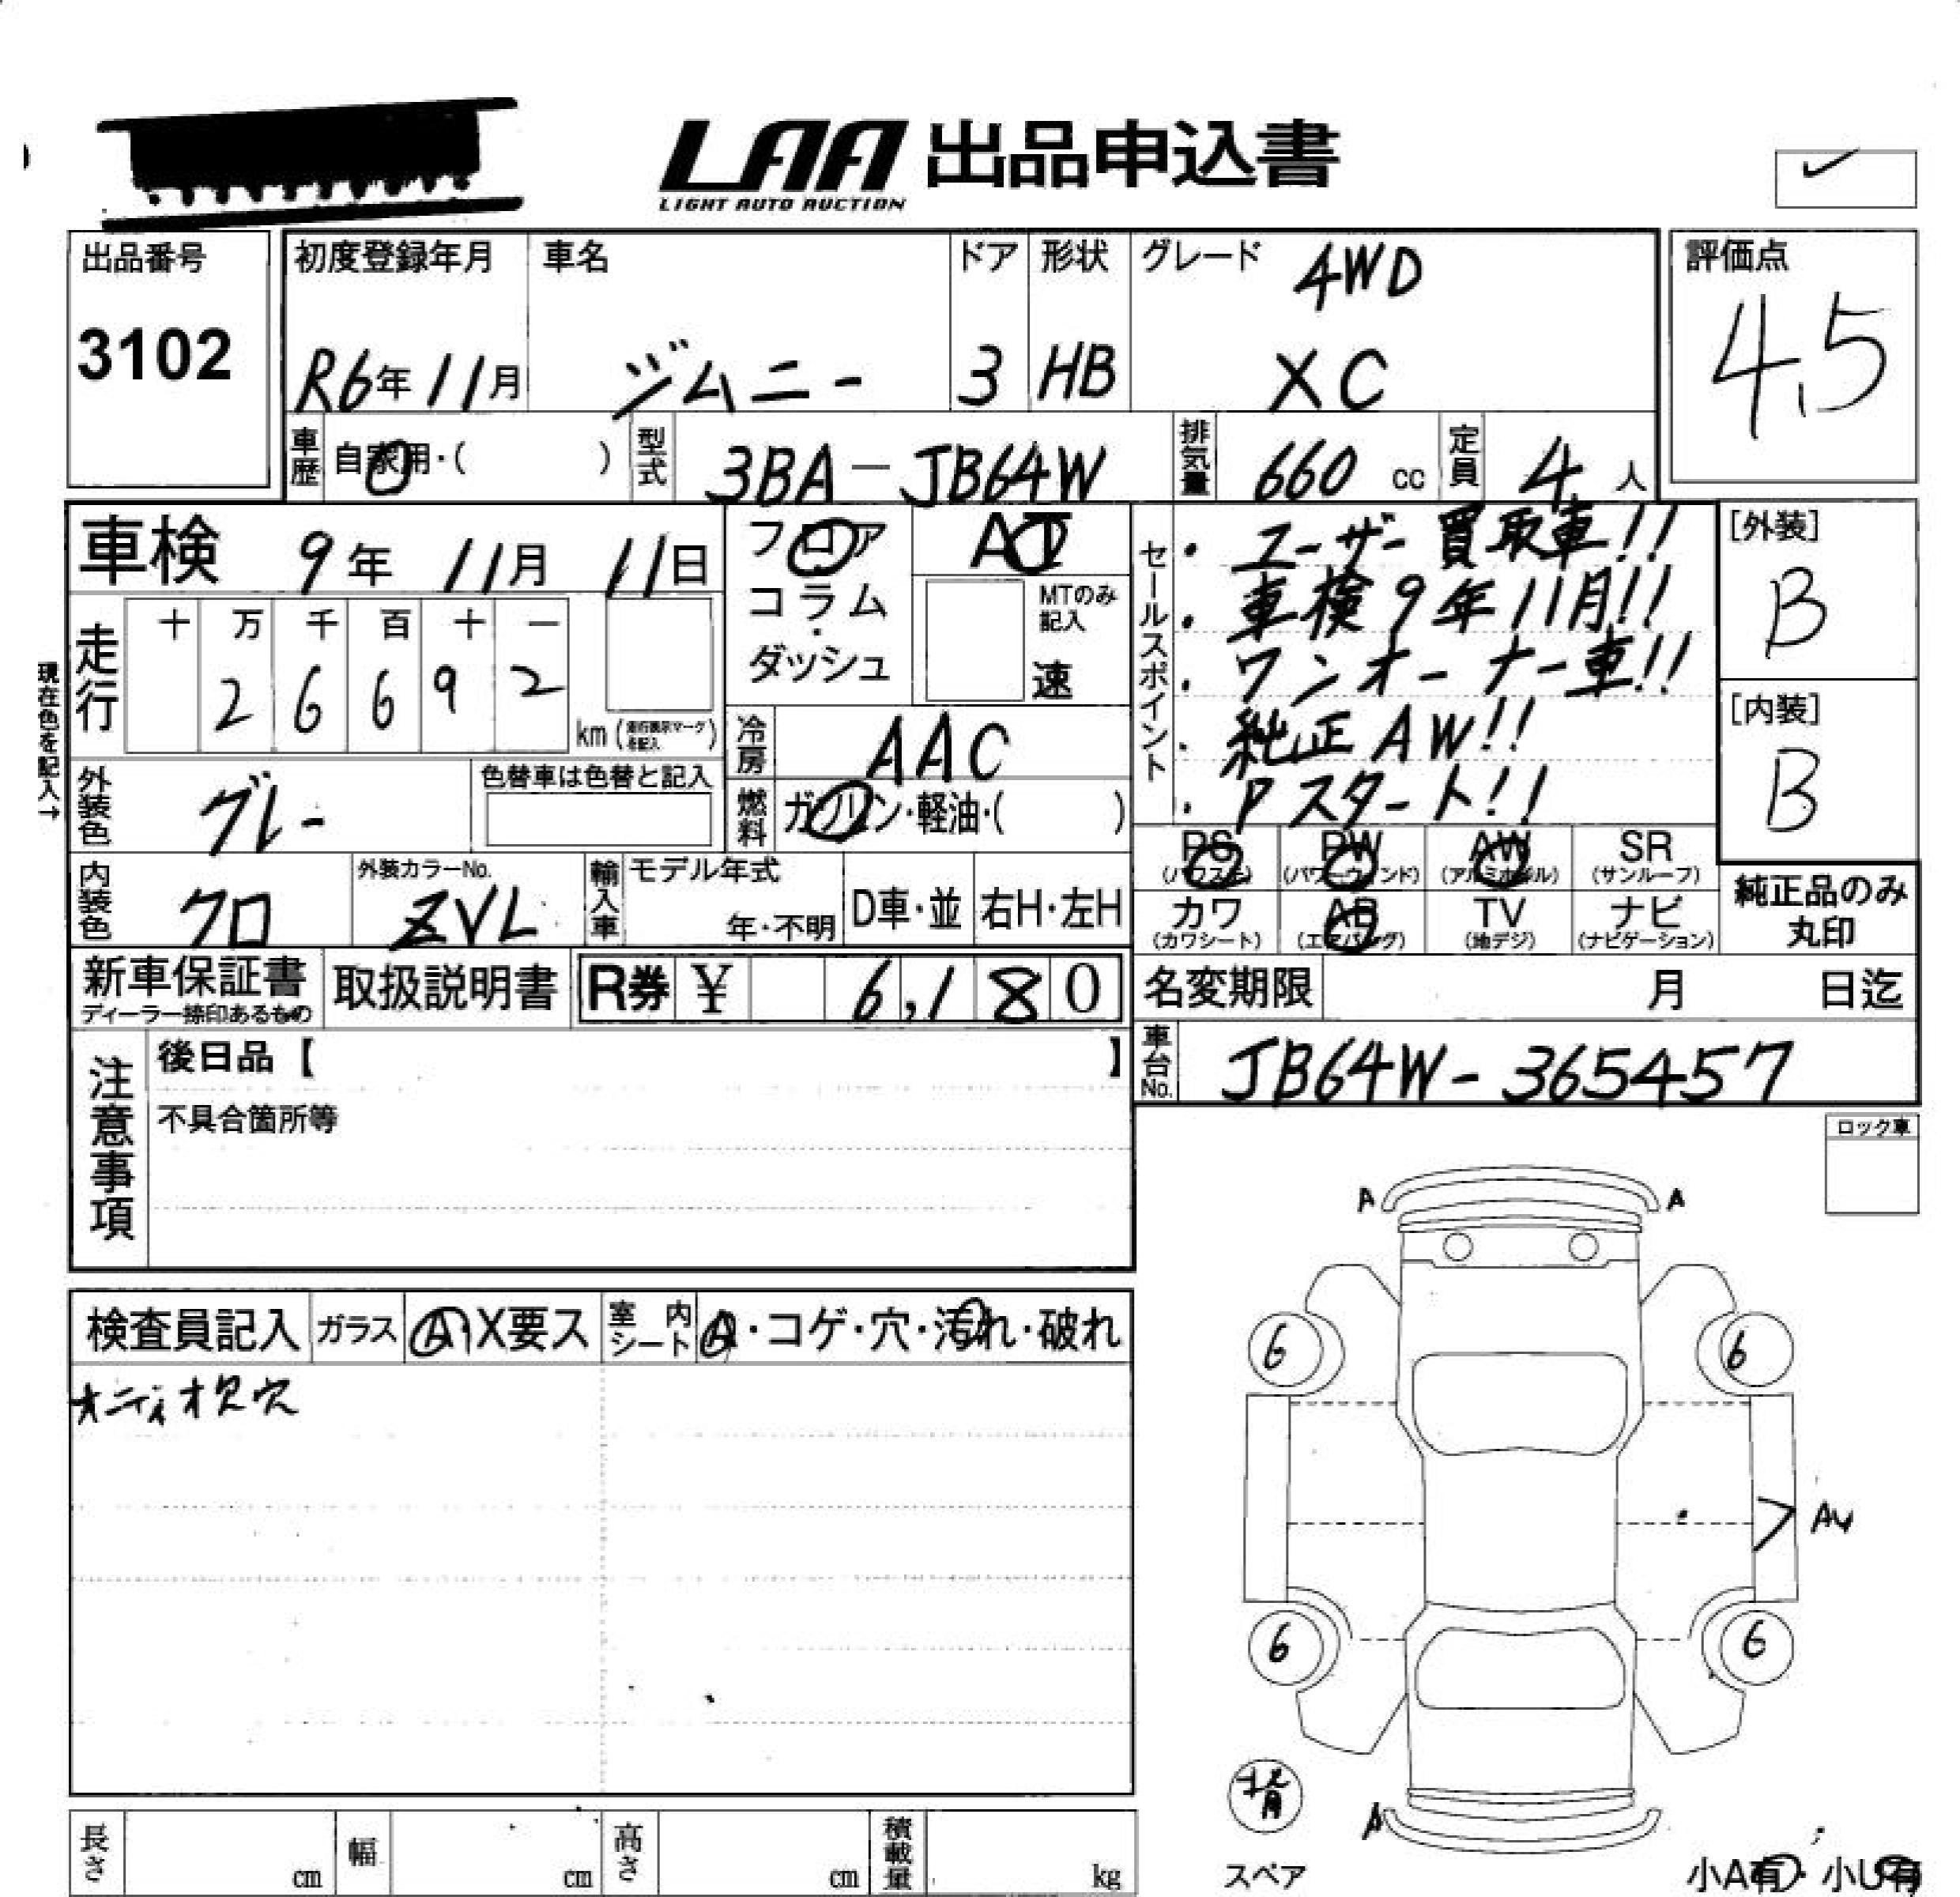 LAA 出品申込書
LIGHT AUTO AUCTION
出品番号
3102
初度登録年月
R6年11月
車名
ジムニー
ドア
3
形状
HB
グレード
4WD
XC
評価点
4.5
車歴 自家用・( )
型式 3BA-JB64W
排気量 660 cc
定員 4人
車検 9年 11月 11日
走行
十 万 千 百 十 一
2 6 6 9 2
km
現在色を記入→
フロア
コラム
・
ダッシュ
AT
MTのみ
記入
速
冷房 AAC
燃料 ガソリン・軽油・( )
セールスポイント
・ユーザー買取車!!
・車検9年11月!!
・ワンオーナー車!!
・純正AW!!
・Pスタート!!
[外装]
B
[内装]
B
外装色 グレー
色替車は色替と記入
内装色 クロ
外装カラーNo.
ZVL
輸入車 モデル年式
年・不明
D車・並
右H・左H
PS
(パワステ)
PW
(パワーウィンド)
AW
(アルミホイル)
SR
(サンルーフ)
カワ
(カワシート)
AB
(エアバッグ)
TV
(地デジ)
ナビ
(ナビゲーション)
純正品のみ
丸印
新車保証書
ディーラー捺印あるもの
取扱説明書
R券 ¥ 6,180
名変期限 月 日迄
車台No. JB64W-365457
注意事項
後日品【 】
不具合箇所等
ロック車
検査員記入
ガラス A・X要ス
室内シート A・コゲ・穴・汚れ・破れ
オーディオ欠穴
A A
6 6
6 6
A
スペア
小A有・小U有
長さ cm
幅 cm
高さ cm
積載量 kg